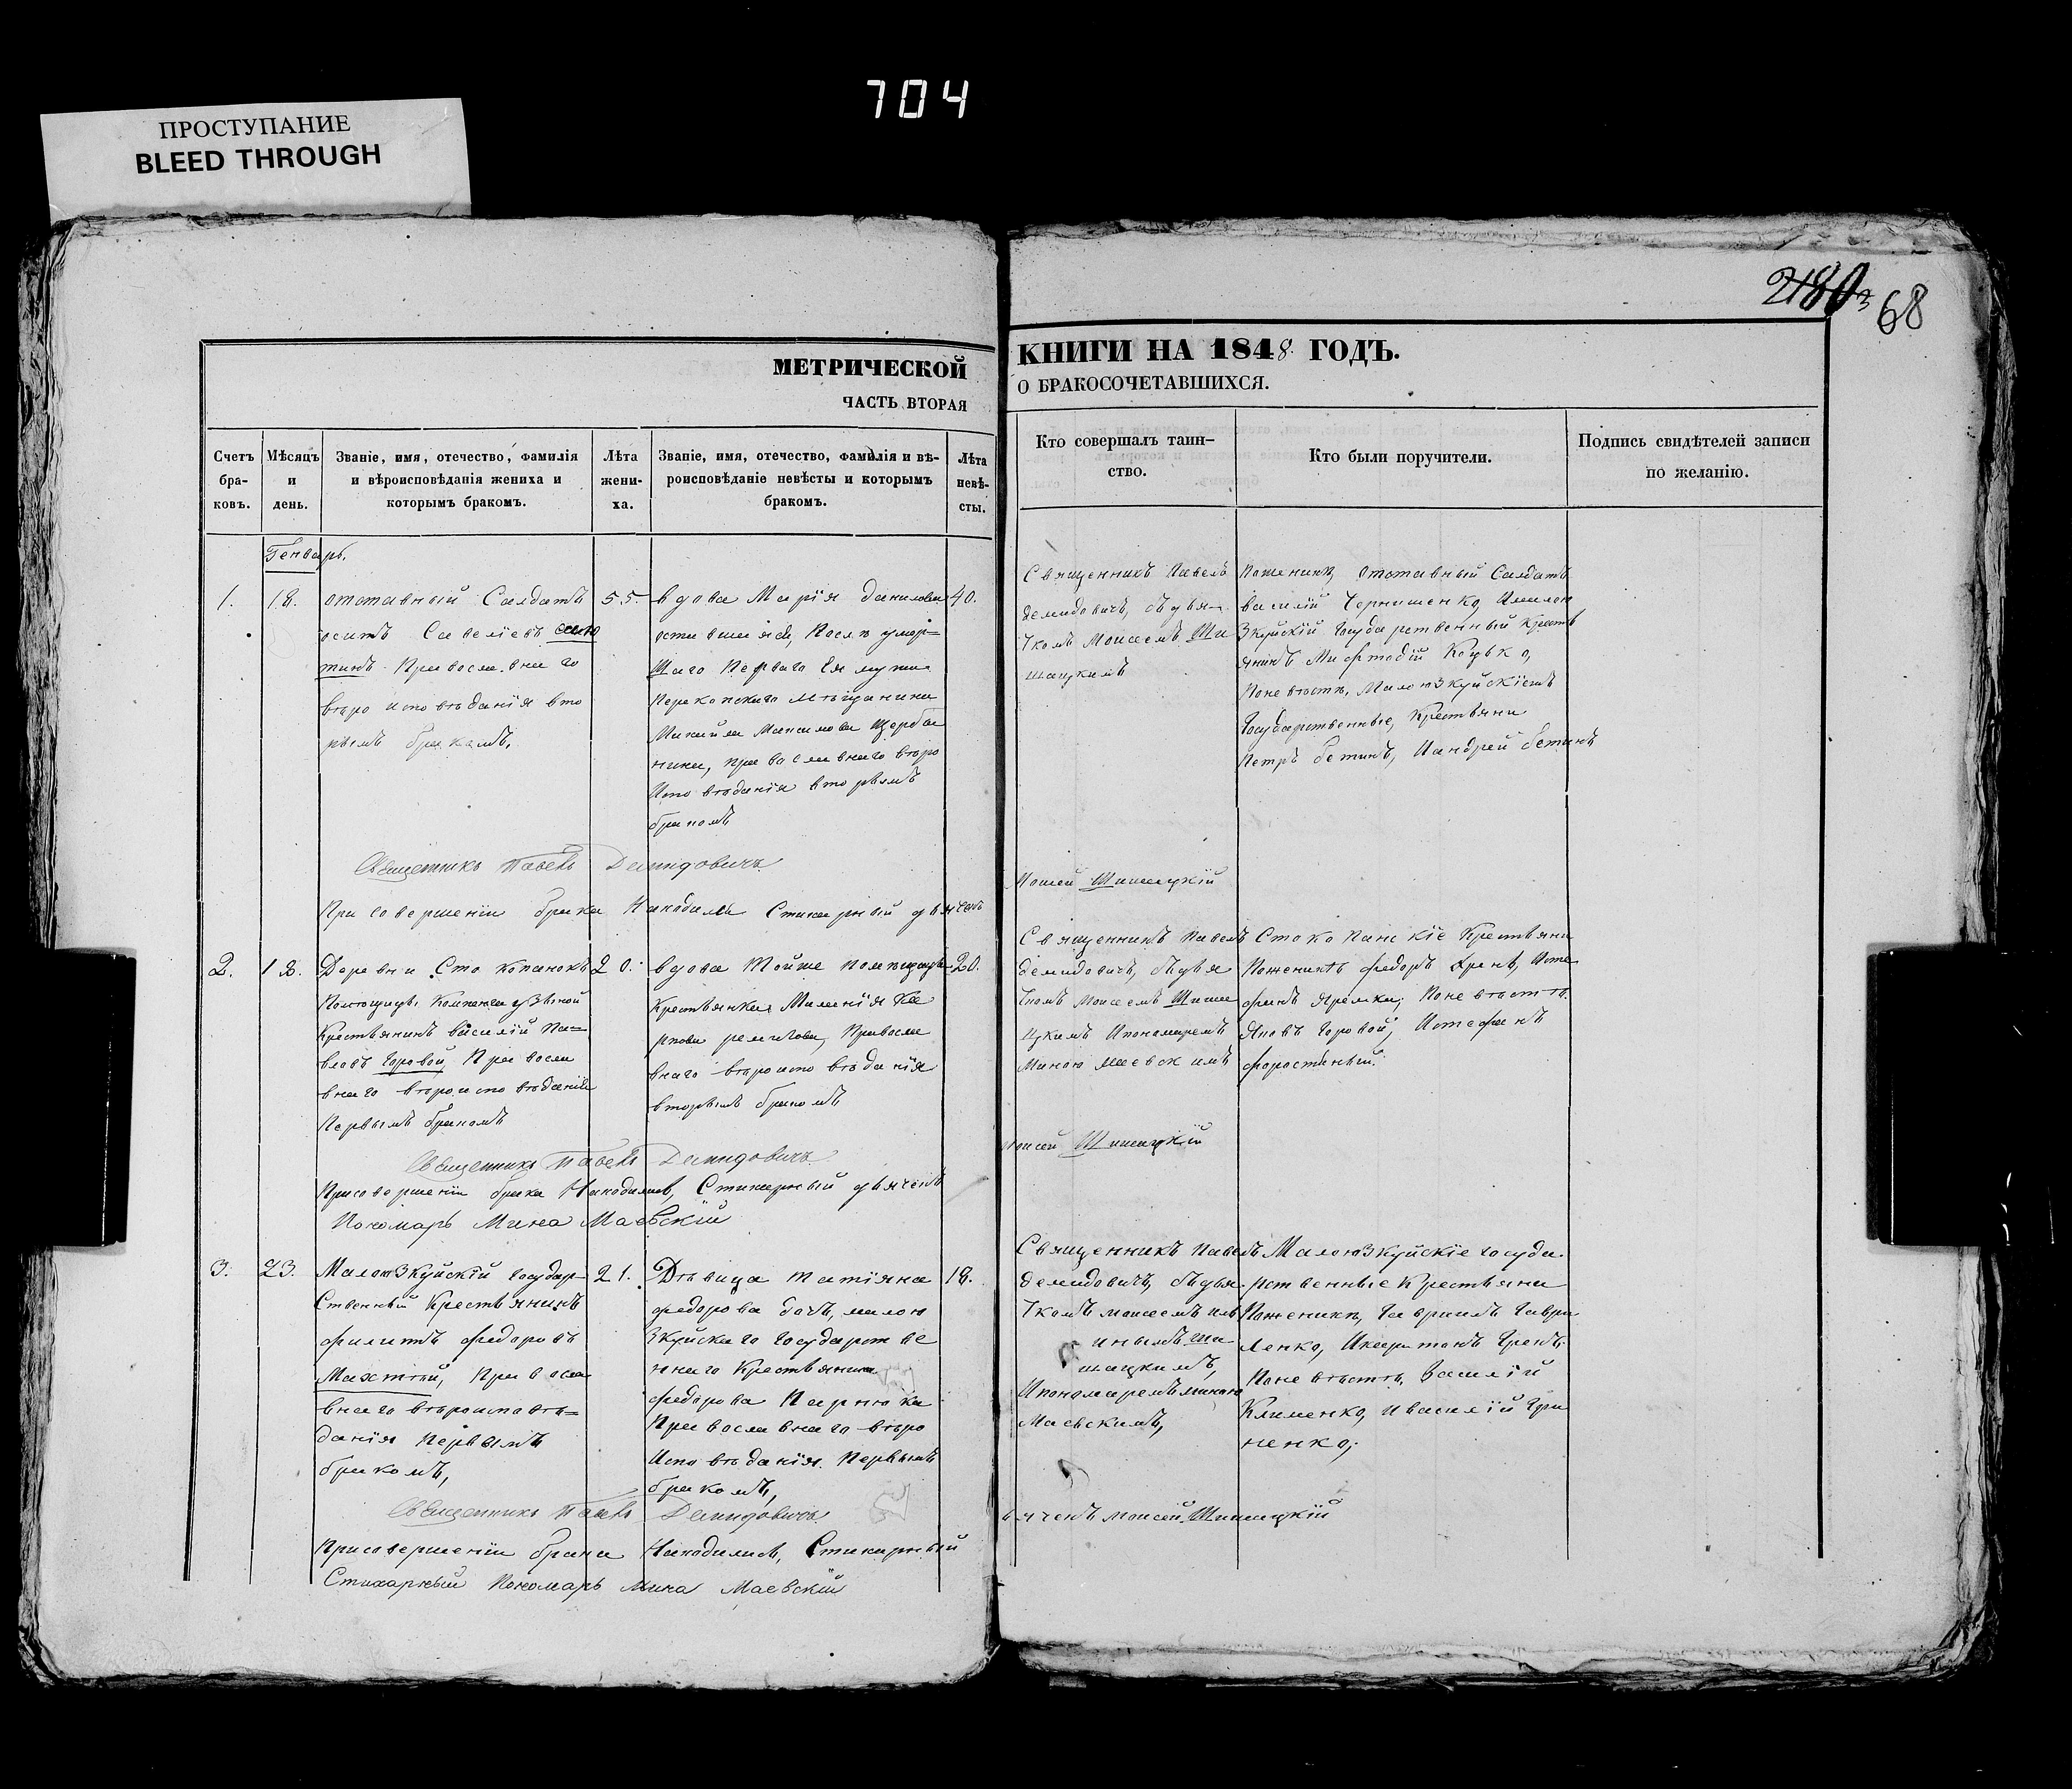 704
ПРОСТУПАНИЕ
BLEED THROUGH
2180
68
МЕТРИЧЕСКОЙ
ЧАСТЬ ВТОРАЯ
КНИГИ НА 1848 ГОДЪ.
О БРАКОСОЧЕТАВШИХСЯ.
Счетъ бра- ковъ.
Мѣсяцъ и день.
Званіе, имя, отечество, фамилія и вѣроисповѣданія жениха и которымъ бракомъ.
Лѣта жени- ха.
Званіе, имя, отечество, фамилія и вѣ- роисповѣданіе невѣсты и которымъ бракомъ.
Лѣта невѣ- сты.
Кто совершалъ таин- ство.
Кто были поручители.
Подпись свидѣтелей записи по желанію.
Генварь.
1. 18.
отставный Салдатъ
осипъ Савеліевъ
Православнаго
вѣро исповѣданія вто
рымъ бракомъ,
55.
вдова Марія данилова
оставшияся, Послѣ умер=
Шаго Перваго Ея мужа
Перекопскаго мѣщанина
Михайла Максимова Щерба
нина, православнаго вѣро
Исповѣданія вторымъ
бракомъ
40.
Священникъ Павелъ
демидовичъ, съдья
чкомъ Моисеемъ Ши
шацкимъ
Поженихѣ, отставный Салдатъ
василій Чернишенко, Имало
Зкуйскій Государственный Крестъ
янинъ Мифтодій Коцько,
Поневѣстѣ, Малоюзкуйскіежъ
Государственные, Крестьяни
Петръ бетинъ, Иандрей бетинъ
Священникъ Павелъ Демидовичъ
При совершеніи брака Находился Стихарный дьячекъ
Мойсей Шишацкій
2. 18.
Деревни Сто Копанокъ
Помѣщицы Компанъ узѣной
Крестьянинъ василій Па=
вловъ Горовой, Православ
наго вѣроисповѣданія
Первымъ бракомъ
20.
вдова Тойже помѣщицы
Крестьянка Миланія Ка
рпова ремигова, Правосла
внаго вѣроисповѣданія
вторымъ бракомъ
20.
Священникъ Павелъ
демидовичъ, съдья
чкомъ Моисеемъ Шиша
цкимъ Ипономаремъ
Миною маевскимъ
Стокопанскіе Крестьяни
Поженихѣ федоръ Хренъ, Исте
фанъ Яремка, Поневѣстѣ
Яковъ Горовой, Истефанъ
форостяный.
Священникъ Павелъ Демидовичъ
Присовершеніи брака Находился, Стихарный дьячекъ
Мойсей Шишацкій
Пономарь Мина Маевскій
3. 23.
Малоюзкуйскій Государ=
Ственный Крестьянинъ
филипъ федоровъ
Махтій, Правосла
внаго вѣроисповѣ=
данія Первымъ
бракомъ,
21.
Дѣвица татіяна
федорова дочь, малою
зкуйскаго Государстве
ннаго Крестьянина
федорова Парнюка
Православнаго вѣро
Исповѣданія Первымъ
бракомъ,
18.
Священникъ Павелъ
демидовичъ, съдья
чкомъ моисеемъ
Шишацкимъ,
Ипономаремъ миною
Маевскимъ,
Малоюзкуйскіе Госуда
рственные Крестьяни
Поженихѣ, Гавриилъ Гаври
ленко, Ихаритонъ Гренъ.
Поневѣстѣ, Василій
Клименко, Ивасилій Гри
ненко,
Священникъ Павелъ Демидовичъ
Присовершеніи брака Находился, Стихарный
дьячекъ моисей Шишацкій
Стихарный Пономарь Мина Маевскій